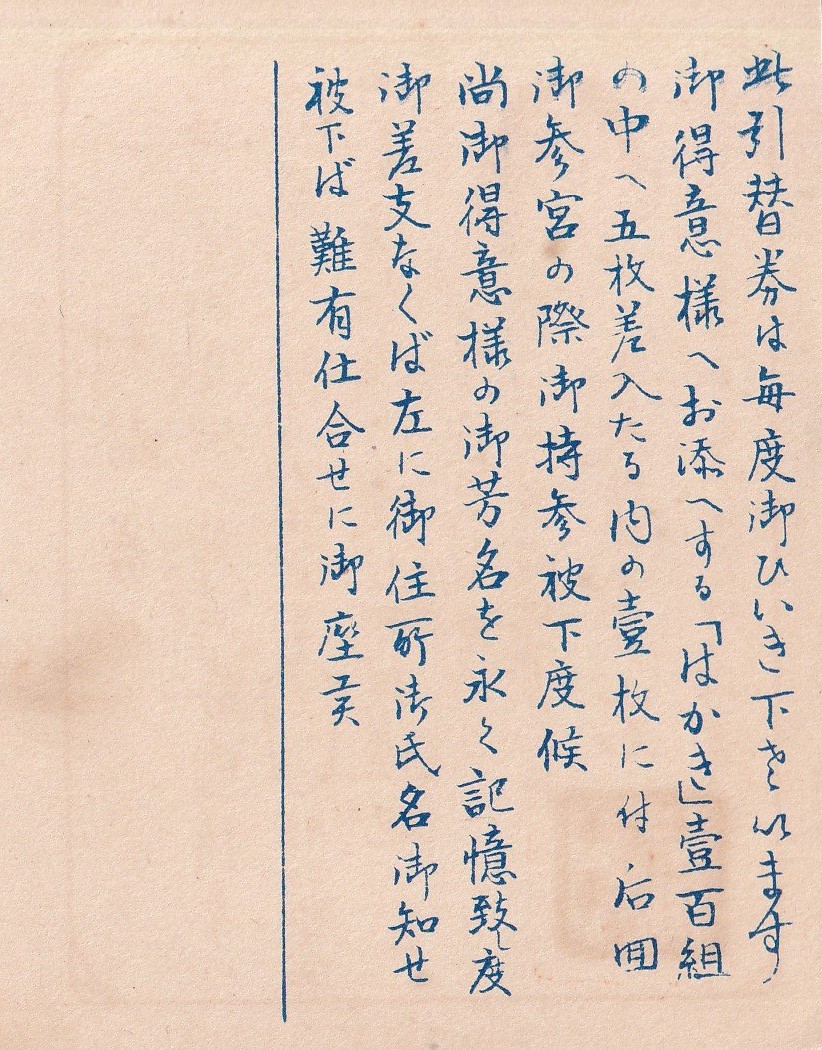 此引替券は毎度御ひいき下さいます
御得意様へお添へする「はかき」壹百組
の中へ五枚差入たる内の壹枚に付后回
御参宮の際御持参被下度候
尚御得意様の御芳名を永く記憶致し度
御差支なくば左に御住所御氏名御知せ
被下ば難有仕合せに御座